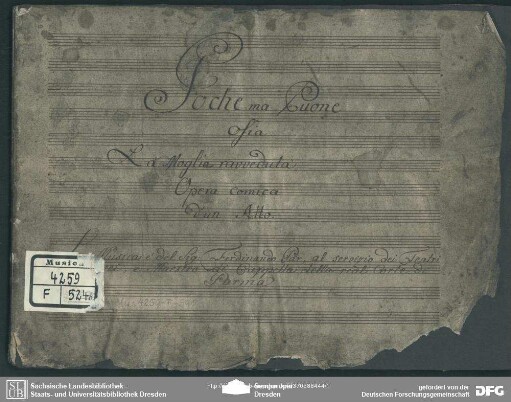 Poche ma Buone
Ossia
La Moglie ravveduta
Opera Comica
d'un Atto
Musica del Sig. Ferdinando Pär, al servizio dei Teatri
Maestro di Cappella della reale Corte di
Parma
Musica
4259
F 524
Sächsische Landesbibliothek
Staats- und Universitätsbibliothek Dresden
Semperoper
Dresden
gefördert von der
Deutschen Forschungsgemeinschaft
DFG